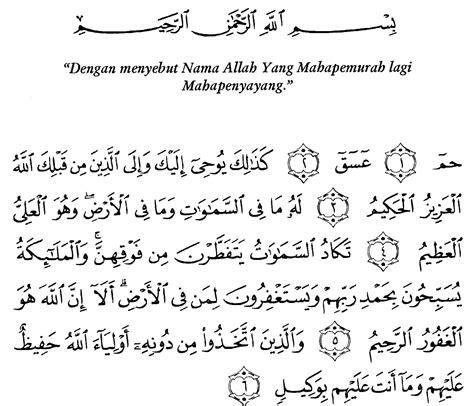 بِسْمِ ٱللَّهِ ٱلرَّحْمَٰنِ ٱلرَّحِيمِ
“Dengan menyebut Nama Allah Yang Mahapemurah lagi
Mahapenyayang.”
حمٓ ١ عٓسٓقٓ ٢ كَذَٰلِكَ يُوحِىٓ إِلَيْكَ وَإِلَى ٱلَّذِينَ مِن قَبْلِكَ ٱللَّهُ
ٱلْعَزِيزُ ٱلْحَكِيمُ ٣ لَهُۥ مَا فِى ٱلسَّمَٰوَٰتِ وَمَا فِى ٱلْأَرْضِ ۖ وَهُوَ ٱلْعَلِىُّ
ٱلْعَظِيمُ ٤ تَكَادُ ٱلسَّمَٰوَٰتُ يَتَفَطَّرْنَ مِن فَوْقِهِنَّ ۚ وَٱلْمَلَٰٓئِكَةُ
يُسَبِّحُونَ بِحَمْدِ رَبِّهِمْ وَيَسْتَغْفِرُونَ لِمَن فِى ٱلْأَرْضِ ۗ أَلَآ إِنَّ ٱللَّهَ هُوَ
ٱلْغَفُورُ ٱلرَّحِيمُ ٥ وَٱلَّذِينَ ٱتَّخَذُوا۟ مِن دُونِهِۦٓ أَوْلِيَآءَ ٱللَّهُ حَفِيظٌ
عَلَيْهِمْ وَمَآ أَنتَ عَلَيْهِم بِوَكِيلٍ ٦